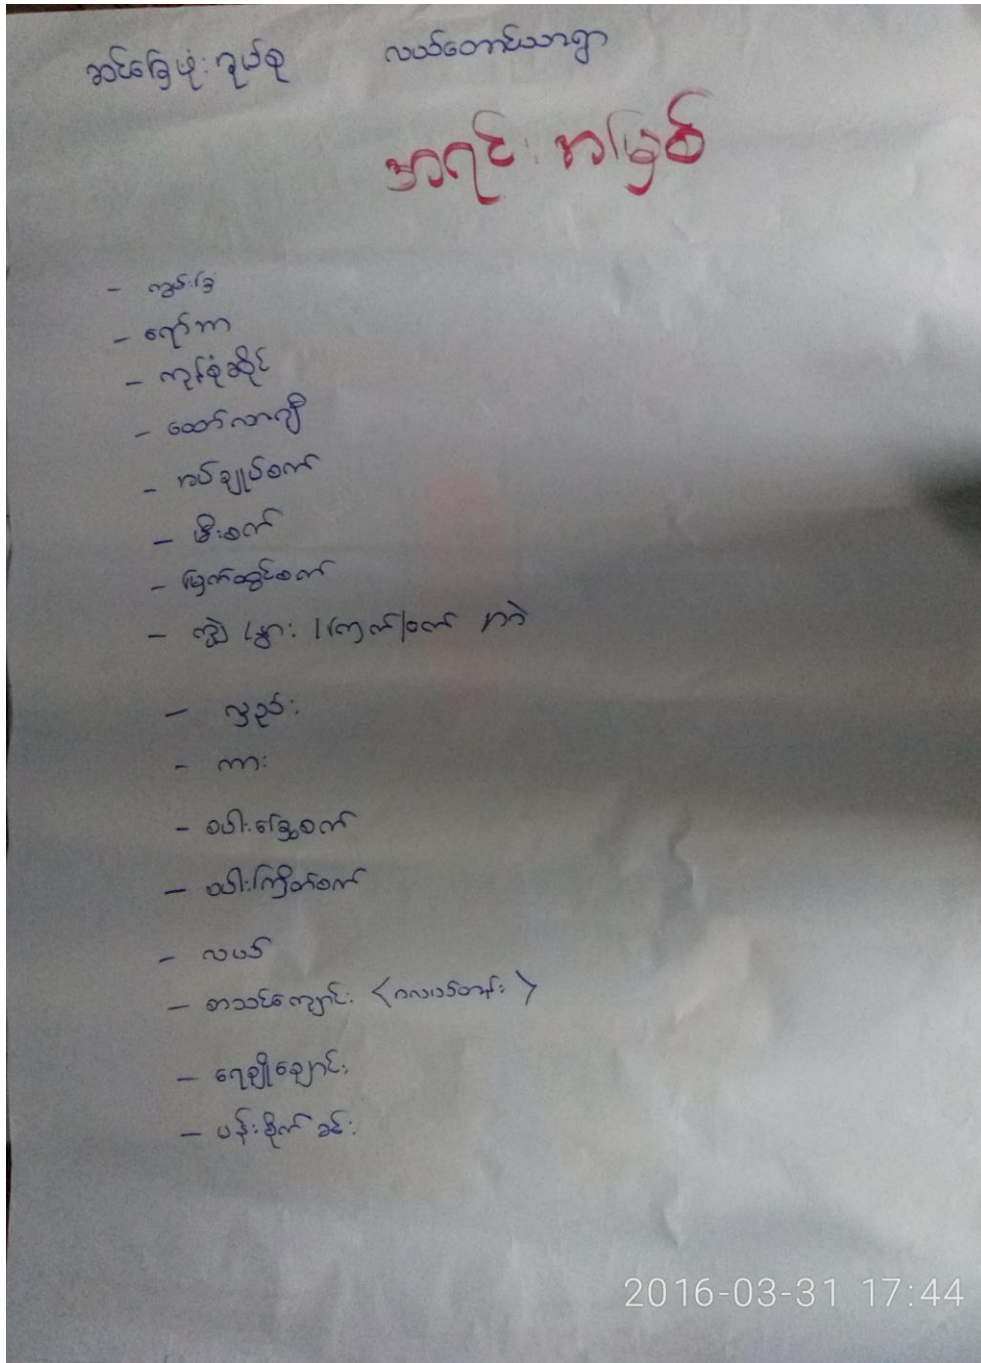 အင်ခြေဖုံးကုပ်စု လယ်တောင်သာရွာ
အရင်းအမြစ်
- ကျွမ်းခြံ
- ရော်ဘာ
- ကုန်စုံဆိုင်
- ထော်လာဂျီ
- အပ်ချုပ်စက်
- မီးစက်
- မြက်ထွင်စက်
- ကျွဲ/နွား/ကြက်/ဝက် ဘဲ
- လှည်း
- ကား
- စပါးခြွေစက်
- စပါးကြိတ်စက်
- လယ်
- စာသင်ကျောင်း <၈လယ်တန်း>
- ရေချိုချောင်း
- ပန်းစိုက်ခင်း